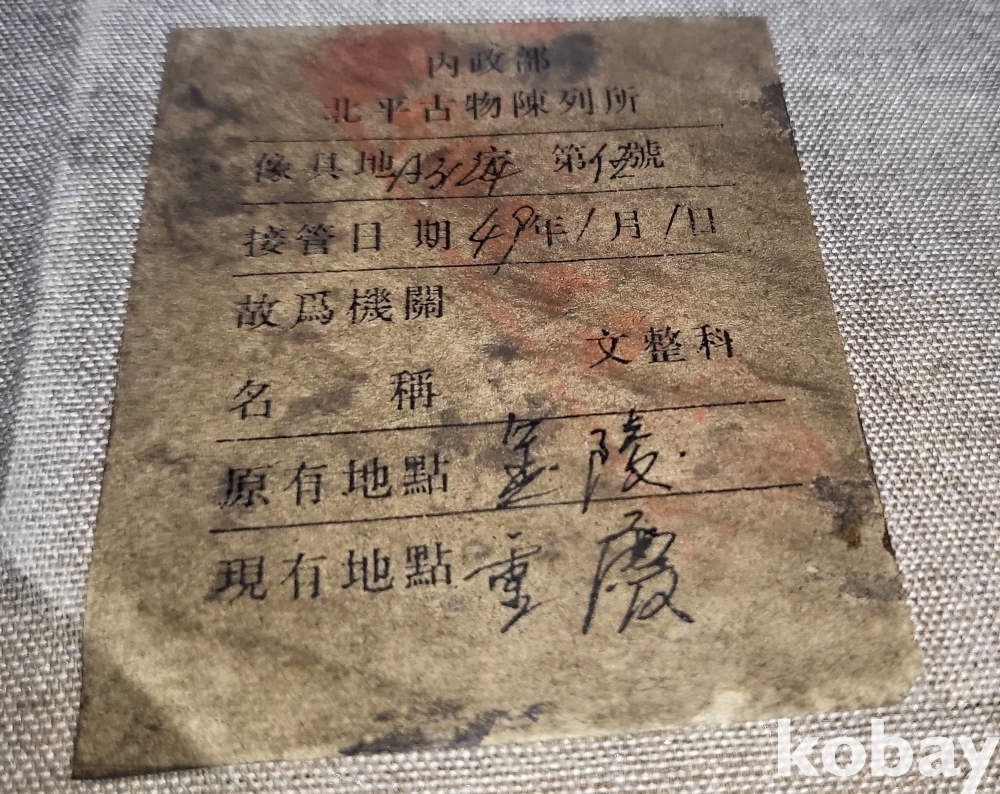 内政部
北平古物陳列所
傢具地 第 號
接管日期 49年1月1日
故爲機關
文整科
名稱
原有地點 金陵
現有地點 重慶
kobay